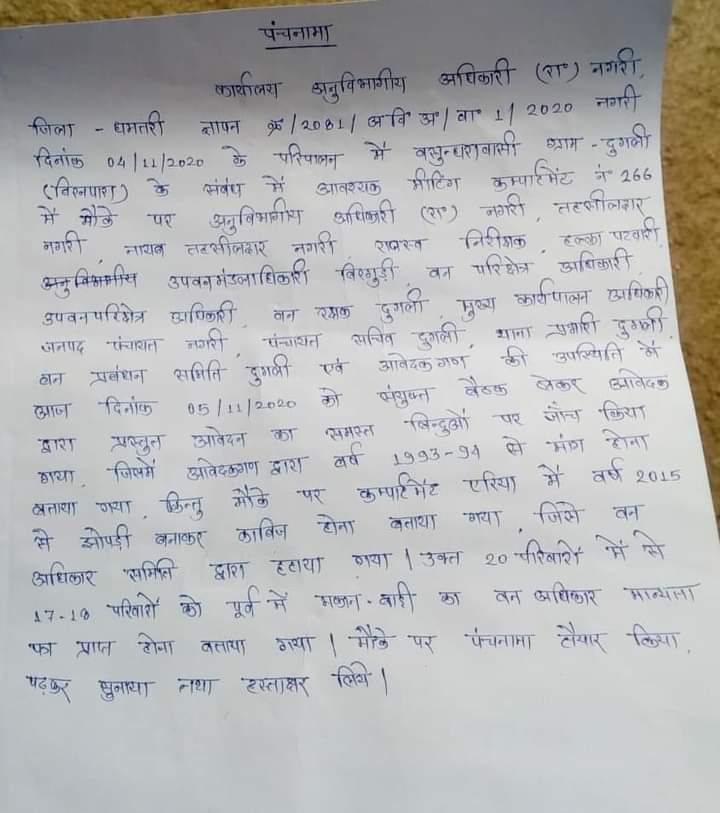 पंचनामा
कार्यालय अनुविभागीय अधिकारी (रा०) नगरी,
जिला - धमतरी ज्ञापन क्र/2081/अ वि अ/ वा० 1/2020 नगरी
दिनांक 04/11/2020 के परिपालन में वसुन्धरावासी ग्राम - दुगली
के संबंध में आवश्यक मीटिंग कम्पार्टमेंट नं० 266
में मौके पर अनुविभागीय अधिकारी (रा०) नगरी, तहसीलदार
नगरी, नायब तहसीलदार नगरी राजस्व निरीक्षक, हल्का पटवारी,
उपवनमंडलाधिकारी बिरगुड़ी, वन परिक्षेत्र अधिकारी,
उपवनपरिक्षेत्र अधिकारी, वन रक्षक दुगली, मुख्य कार्यपालन अधिकारी
जनपद पंचायत नगरी, पंचायत सचिव दुगली, थाना प्रभारी दुगली,
वन प्रबंधन समिति दुगली एवं आवेदकगण की उपस्थिति में
आज दिनांक 05/11/2020 को संयुक्त बैठक लेकर आवेदक
द्वारा प्रस्तुत आवेदन का समस्त बिन्दुओं पर जाँच किया
गया, जिसमें आवेदकगण द्वारा वर्ष 1993-94 से मांग होना
बताया गया, किन्तु मौके पर कम्पार्टमेंट एरिया में वर्ष 2015
से झोपड़ी बनाकर काबिज होना बताया गया, जिसे वन
अधिकार समिति द्वारा हटाया गया | उक्त 20 परिवारों में से
17-18 परिवारों को पूर्व में मकान-बाड़ी का वन अधिकार मान्यता
का प्राप्त होना बताया गया | मौके पर पंचनामा तैयार किया,
पढ़कर सुनाया तथा हस्ताक्षर लिये |